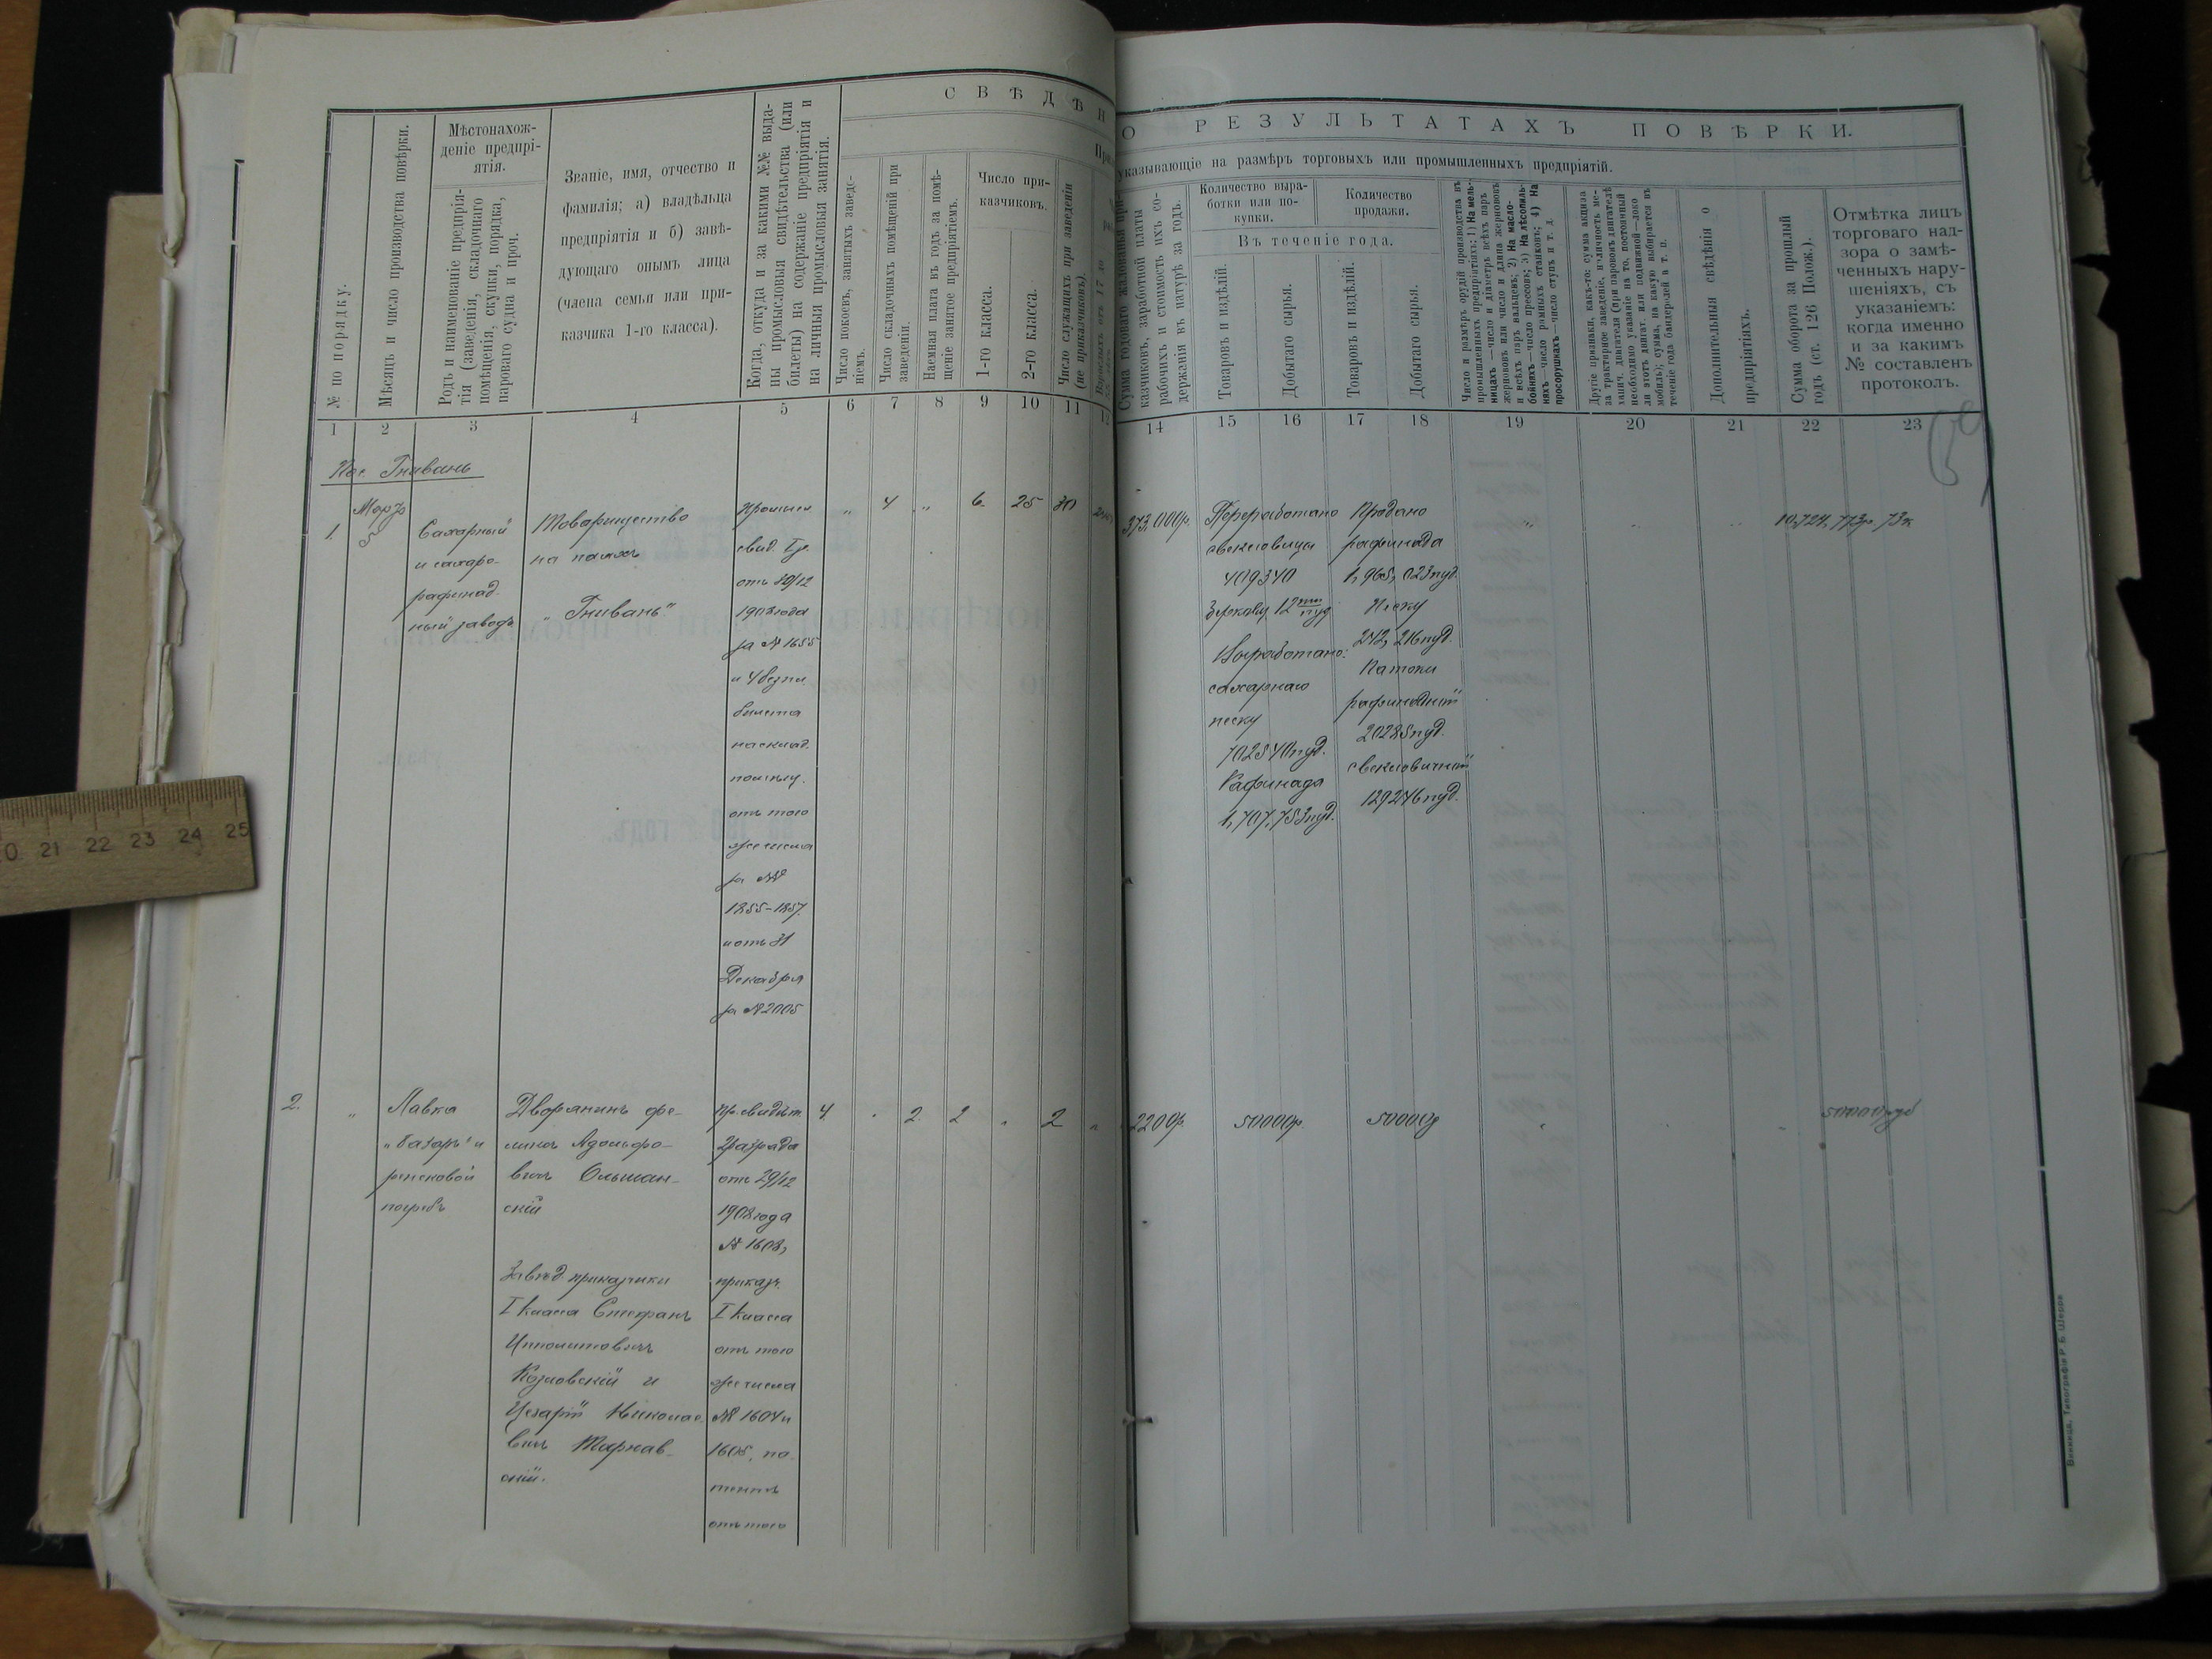 СВѢДѢН
О РЕЗУЛЬТАТАХЪ ПОВѢРКИ.
указывающіе на размѣръ торговыхъ или промышленныхъ предпріятій.
№ по порядку.
Мѣсяцъ и число производства повѣрки.
Мѣстонахож-
деніе предпрі-
ятія.
Родъ и наименованіе предпрія-
тія (заведенія, складочнаго
помѣщенія, скупки, порядка,
парового судна и проч.
Званіе, имя, отчество и
фамилія; а) владѣльца
предпріятія и б) завѣ-
дующаго онымъ лица
(члена семьи или при-
казчика 1-го класса).
Когда, откуда и за какими №№ выда-
ны промысловыя свидѣтельства (или
билеты) на содержаніе предпріятія и
на личныя промысловыя занятія.
Число покоевъ, занятыхъ заведе-
ніемъ.
Число складочныхъ помѣщеній при
заведеніи.
Наемная плата въ годъ за помѣ-
щеніе занятое предпріятіемъ.
Число при-
казчиковъ.
1-го класса.
2-го класса.
Число служащихъ при заведеніи
(не приказчиковъ).
Сумма годоваго жалованья при-
казчиковъ, заработной платы
рабочихъ и стоимость ихъ со-
держанія въ натурѣ за годъ.
Количество выра-
ботки или по-
купки.
Количество
продажи.
Въ теченіе года.
Товаровъ и издѣлій.
Добытаго сырья.
Товаровъ и издѣлій.
Добытаго сырья.
Число и размѣръ орудій производства въ
промышленныхъ предпріятіяхъ: 1) На мель-
ницахъ—число и діаметръ всѣхъ паръ
жернововъ или число и длина жернововъ
и всѣхъ паръ вальцевъ; 2) На масло-
бойняхъ—число прессовъ; 3) На лѣсопиль-
няхъ—число рамныхъ станковъ; 4) На
просорушкахъ—число ступъ и т. д.
Другіе признаки, какъ-то: сумма акциза
за трактирное заведеніе,
теченіе года бандеролей и т. п.
Дополнительныя свѣдѣнія о
предпріятіяхъ.
Сумма оборота за прошлый
годъ (ст. 126 Полож.).
Отмѣтка лицъ
торговаго над-
зора о замѣ-
ченныхъ нару-
шеніяхъ, съ
указаніемъ:
когда именно
и за какимъ
№ составленъ
протоколъ.
1 2 3 4 5 6 7 8 9 10 11 14 15 16 17 18 19 20 21 22 23
Гнивань
1.
Сахарный
и сахаро-
рафинад-
ный заводъ
Товарищество
на паяхъ
"Гнивань"
свид.
отъ 30/12
1908 года
за № 1655
и 4 безпл.
билета
на склад.
отъ того
же числа
за №№
1855-1857
и отъ 31
Декабря
за № 2005
" 4 " 6. 25 30
373,000р.
Переработано
свекловицы
409340
Выработано:
сахарнаго
песку
702540 пуд.
Рафинада
1,707,753 пуд.
Продано
рафинада
1,965,023 пуд.
Песку
242,216 пуд.
Патоки
20285 пуд.
129246 пуд.
10,724,773р 73к
2. "
Лавка
"базаръ" и
ренсковой
погребъ
Дворянинъ Фе-
ликсъ Адольфо-
вичъ Ольшан-
скій
Завѣд. приказчики
I класса Стефанъ
Ипполитовичъ
Козловскій и
Цезарій Николае-
вичъ Тарнав-
скій.
пр. свидѣт.
2 разряда
отъ 29/12
1908 года
№ 1603,
приказч.
I класса
отъ того
же числа
№№ 1604 и
1605, па-
тентъ
отъ того
4 2 2 2
2200р.
50000р.
50000р
50000 руб
20 21 22 23 24 25
Винница, Типографія Р. Б. Шерра